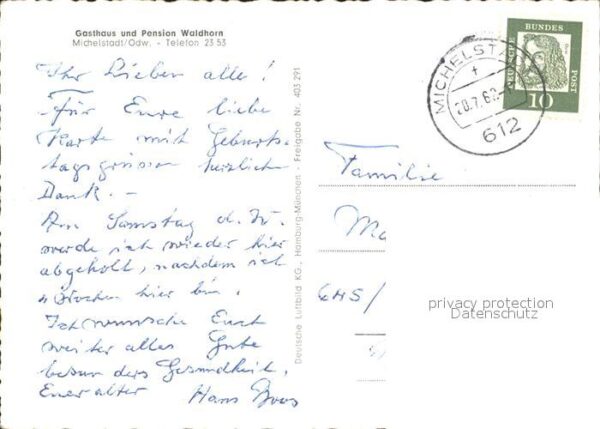 Gasthaus und Pension Waldhorn
Michelstadt/Odw. - Telefon 23 53
Ihr Lieben alle!
Für Eure liebe
Karte mit Geburts-
tagsgrüssen herzlich
Dank. -
Am Samstag d. W.
werde ich wieder hier
abgeholt, nachdem ich
4 Wochen hier bin.
Ich wünsche Euch
weiter alles Gute
besonders Gesundheit.
Euer alter
Hans
Deutsche Luftbild KG., Hamburg-München - Freigabe Nr. 403 291
MICHELST
20.7.62
612
DEUTSCHE BUNDES POST
10
Familie
Ma
privacy protection
Datenschutz